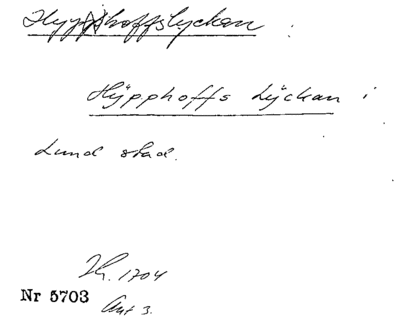 Hyphoffslyckan :
Hÿpphoffs Lÿckan i
Lund stad.
Jb. 1704
Nr 5703
Ant 3.